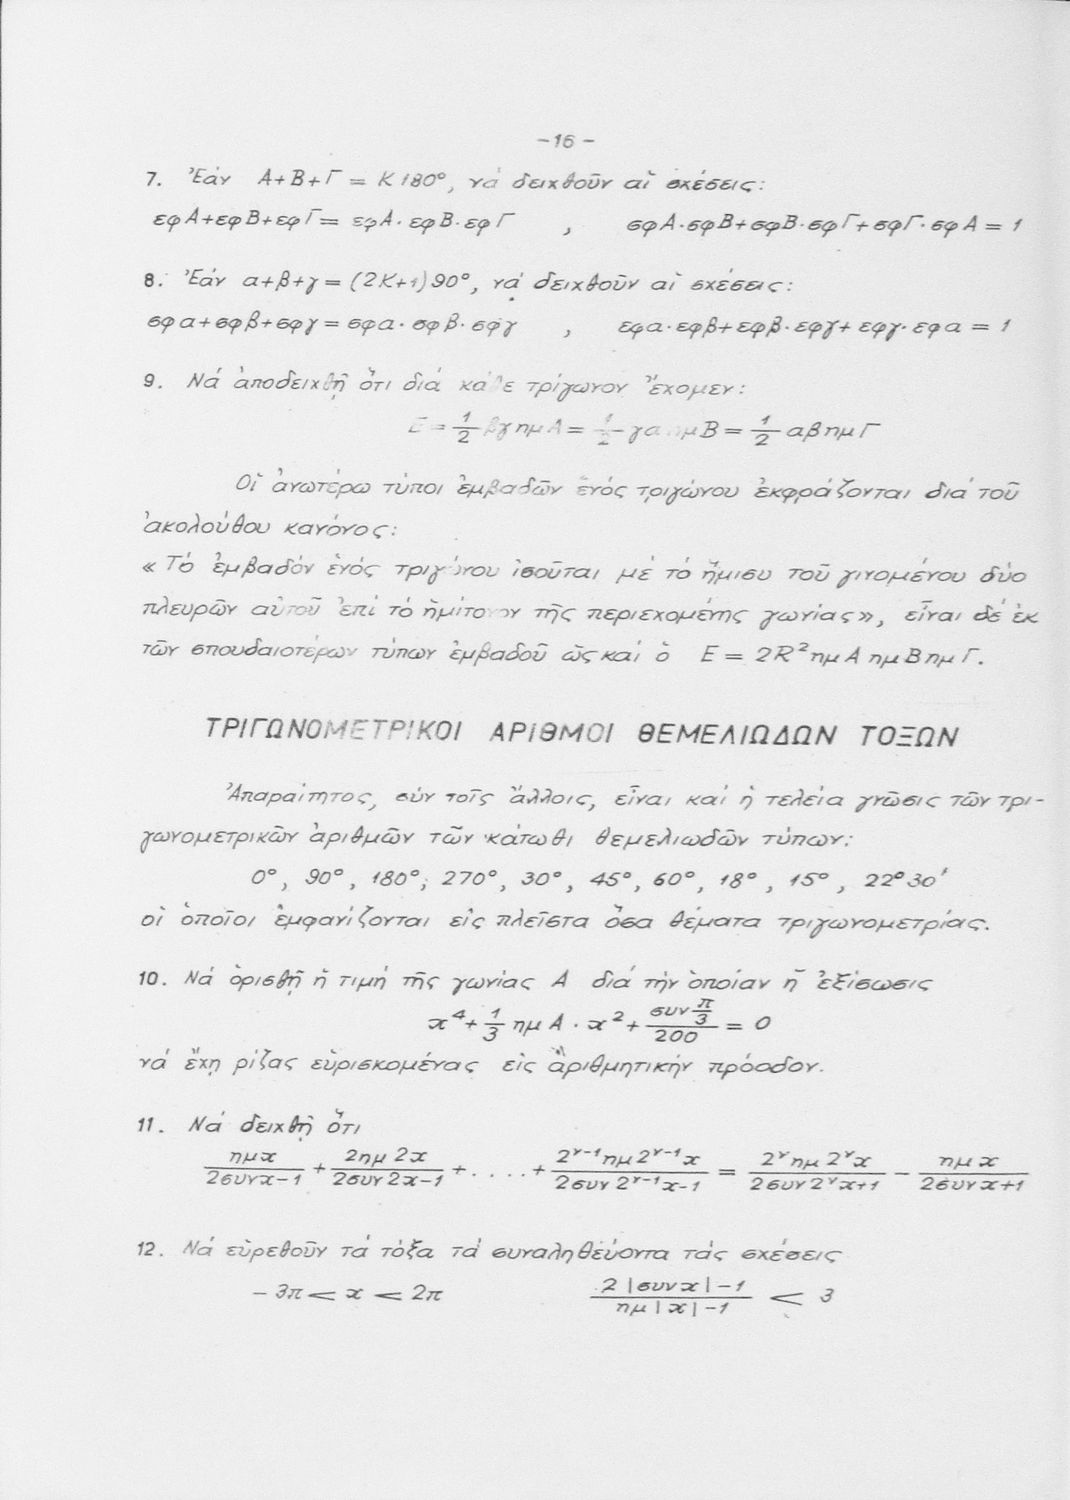 -16-
7. Ἐάν A+B+Γ = K180°, νά δειχθοῦν αἱ σχέσεις:
εφA+εφB+εφΓ = εφA·εφB·εφΓ , σφA·σφB+σφB·σφΓ+σφΓ·σφA = 1
8. Ἐάν α+β+γ = (2K+1)90°, νά δειχθοῦν αἱ σχέσεις:
σφα+σφβ+σφγ = σφα·σφβ·σφγ , εφα·εφβ+εφβ·εφγ+εφγ·εφα = 1
9. Νά ἀποδειχθῇ ὅτι διά κάθε τρίγωνον ἔχομεν:
E = 1/2 βγ ημA = 1/2 γα ημB = 1/2 αβ ημΓ
Οἱ ἀνωτέρω τύποι ἐμβαδῶν ἑνός τριγώνου ἐκφράζονται διά τοῦ
ἀκολούθου κανόνος:
«Τό ἐμβαδόν ἑνός τριγώνου ἰσοῦται μέ τό ἥμισυ τοῦ γινομένου δύο
πλευρῶν αὐτοῦ ἐπί τό ἡμίτονον τῆς περιεχομένης γωνίας», εἶναι δέ ἐκ
τῶν σπουδαιοτέρων τύπων ἐμβαδοῦ ὡς καί ὁ E = 2R² ημA ημB ημΓ.
ΤΡΙΓΩΝΟΜΕΤΡΙΚΟΙ ΑΡΙΘΜΟΙ ΘΕΜΕΛΙΩΔΩΝ ΤΟΞΩΝ
Ἀπαραίτητος, σύν τοῖς ἄλλοις, εἶναι καί ἡ τελεία γνῶσις τῶν τρι-
γωνομετρικῶν ἀριθμῶν τῶν κάτωθι θεμελιωδῶν τύπων:
0°, 90°, 180°, 270°, 30°, 45°, 60°, 18°, 15°, 22°30'
οἱ ὁποῖοι ἐμφανίζονται εἰς πλεῖστα ὅσα θέματα τριγωνομετρίας.
10. Νά ὁρισθῇ ἡ τιμή τῆς γωνίας A διά τήν ὁποίαν ἡ ἐξίσωσις
x⁴ + 1/3 ημA · x² + (συν π/3)/200 = 0
νά ἔχῃ ρίζας εὑρισκομένας εἰς ἀριθμητικήν πρόοδον.
11. Νά δειχθῇ ὅτι
ημx/(2συνx-1) + 2ημ2x/(2συν2x-1) + .... + 2^(ν-1)ημ2^(ν-1)x/(2συν2^(ν-1)x-1) = 2^νημ2^νx/(2συν2^νx+1) - ημx/(2συνx+1)
12. Νά εὑρεθοῦν τά τόξα τά συναληθεύοντα τάς σχέσεις
-3π < x < 2π (2|συνx|-1)/(ημ|x|-1) < 3